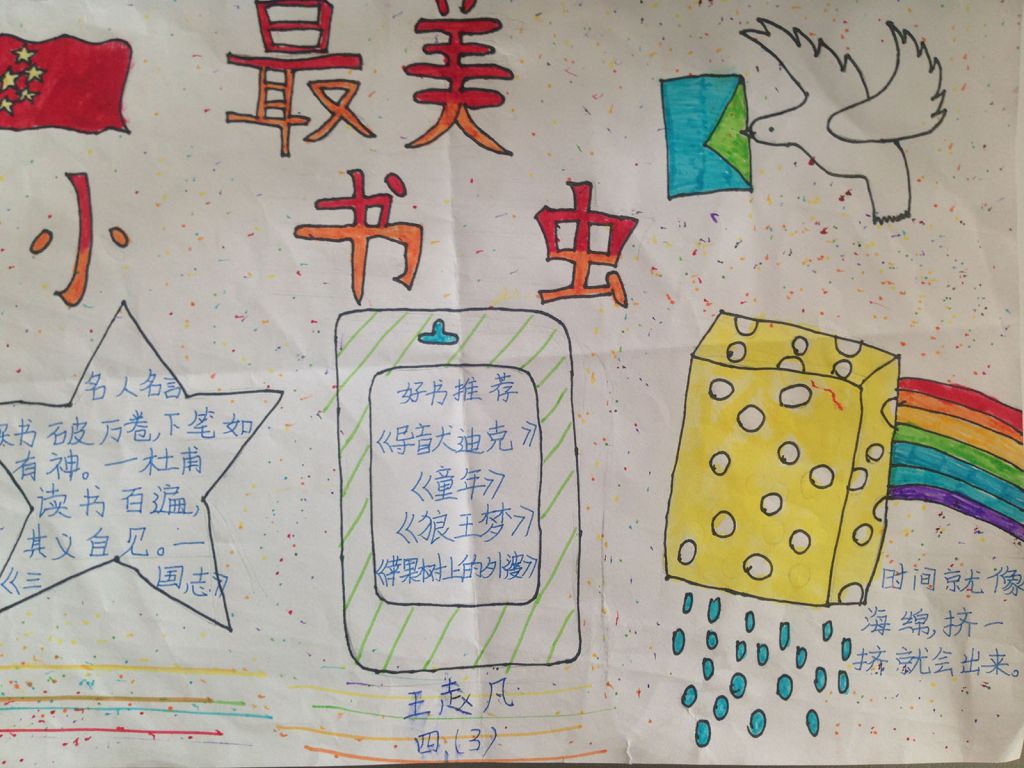 最美
小书虫
名人名言
读书破万卷,下笔如
有神。一杜甫
读书百遍,
其义自见。一
《三国志》
好书推荐
《导音犬迪克》
《童年》
《狼王梦》
《苹果树上的外婆》
时间就像
海绵,挤一
挤就会出来。
王赵凡
四.(3)